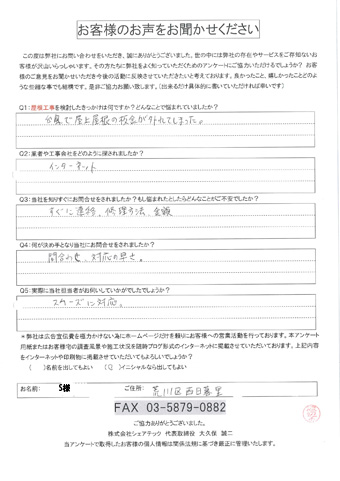 お客様のお声をお聞かせください
この度は弊社にお問い合わせをいただき、誠にありがとうございました。世の中には弊社の存在やサービスをご存知ないお
客様が沢山いらっしゃいます。その方たちに弊社をよく知っていただくためのアンケートにご協力いただけるでしょうか？お客
様のご意見をお聞かせいただき今後の活動に反映させていきたいと考えております。良かったこと、嬉しかったことどのよ
うな些細な事でも結構です。是非ご協力お願い致します。（出来るだけ具体的に書いていただければ幸いです）
Q1：屋根工事を検討したきっかけは何ですか？どんなことで悩まれていましたか？
台風で屋上屋根の板金が外れてしまった。
Q2：業者や工事会社をどのように探されましたか？
インターネット
Q3：当社を知りすぐにお問合せをされましたか？もし悩まれたとしたらどんなことがご不安でしたか？
すぐに連絡、修理方法、金額
Q4：何が決め手となり当社にお問合せをされましたか？
問合わせ、対応の早さ。
Q5：実際に当社担当者がお伺いしていかがでしたでしょうか？
スムーズに対応。
＊弊社は広告宣伝費を極力かけない為にホームページだけを頼りにお客様への営業活動を行っております。本アンケート
用紙またはお客様宅の調査風景や施工状況を随時ブログ形式のインターネットに掲載させていただいております。上記内容
をインターネットや印刷物に掲載させていただいてもよろしいでしょうか？
（　）名前を出してもよい　（○）イニシャルなら出してもよい
お名前： S様 ご住所： 荒川区西日暮里
FAX 03-5879-0882
ご協力ありがとうございました。
株式会社シェアテック 代表取締役 大久保 誠二
当アンケートで取得したお客様の個人情報は関係法規に基づき厳正に管理いたします。